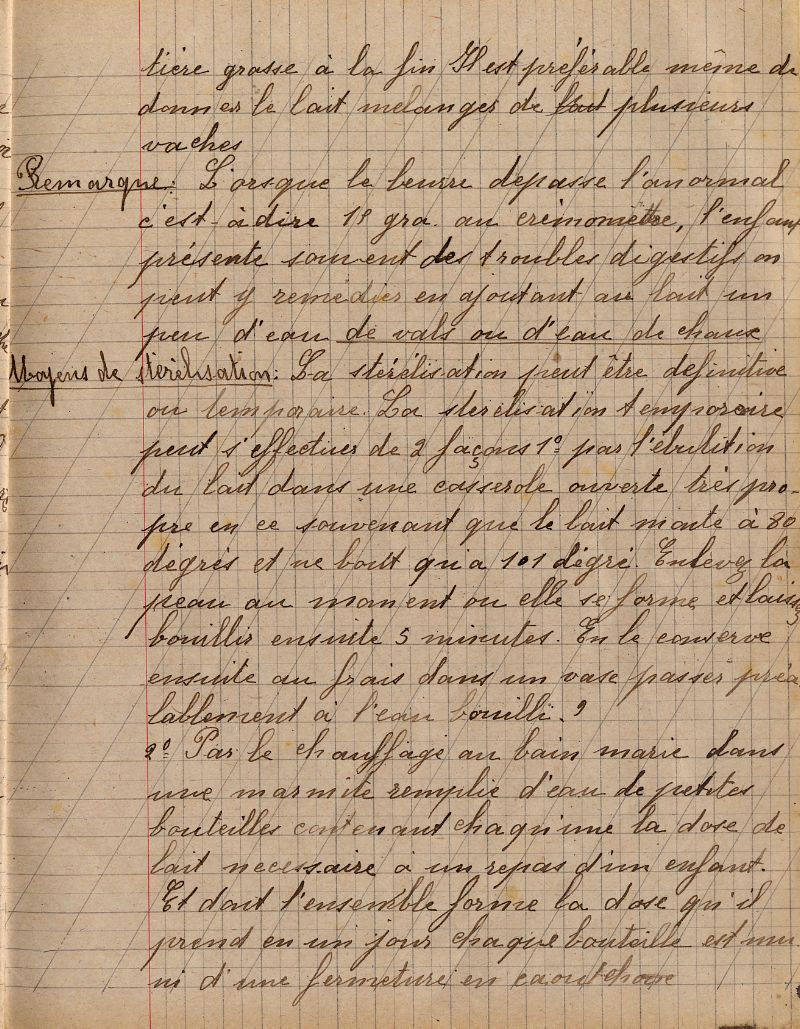 tière grasse à la fin Il est préférable même de
donner le lait mélanger de lait plusieurs
vaches
Remarque : L'orsque le beurre depasse l'anormal
c'est-à dire 19 gra. au crémomettre, l'enfant
présente souvent des troubles digestifs on
peut y remedier en ajoutant au lait un
peu d'eau de vals ou d'eau de chaux
Moyens de stérélisation : La stérélisation peut être definitive
ou temporaire. La sterélisation temporaire
peut s'effectuer de 2 façons 1º par l'ébulition
du lait dans une casserole ouverte très pro-
pre en ce souvenant que le lait monte à 80
dégrés et ne bout qu'a 101 dégré. Enlevez la
peau au moment ou elle se forme et laissez
bouillir ensuite 5 minutes. En le conserve
ensuite au frais dans un vase passer préa
lablement à l'eau bouilli.
2º Par le chauffage au bain marie dans
une marmite remplie d'eau de petites
bouteilles contenant chaqu'une la dose de
lait necessaire à un repas d'un enfant.
Et dont l'ensemble forme la dose qu'il
prend en un jour chaque bouteille est mu
ni d'une fermeture en caoutchouc